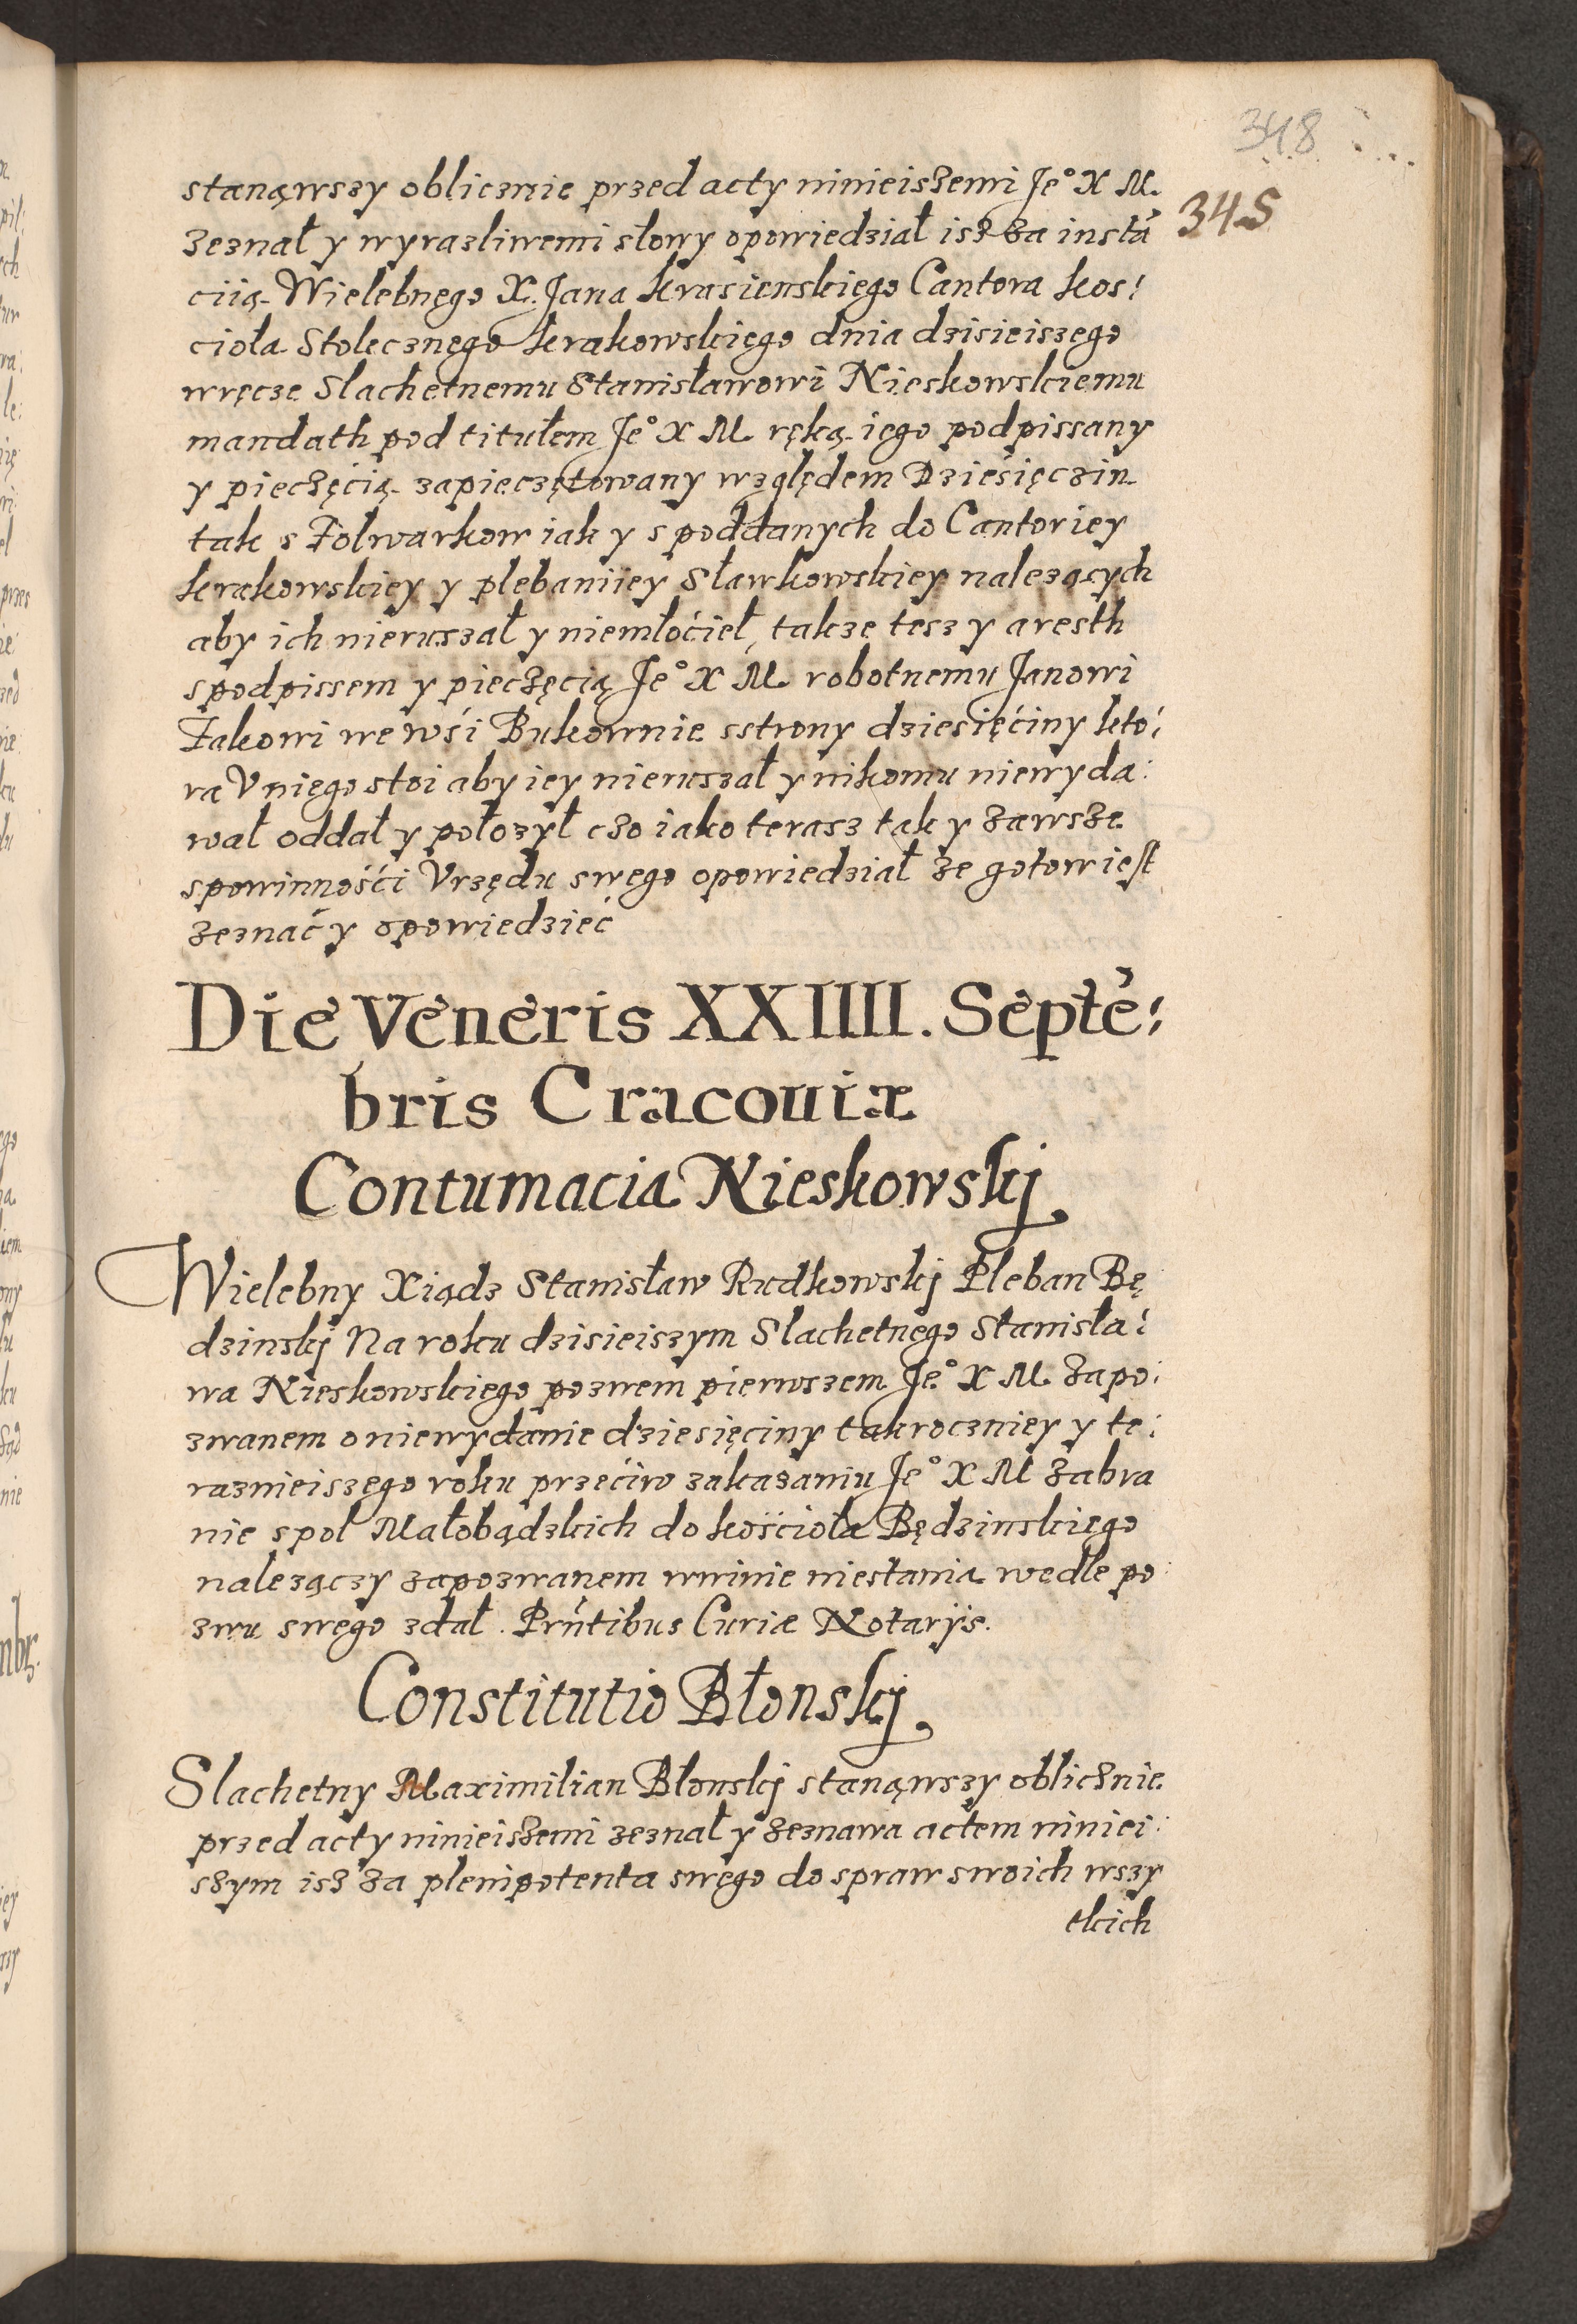 348
345
stanąwszy oblicznie przed acty ninieiszemi Je° X M.
zeznał y wyrazliwemi słowy opowiedział isz za instã
ciią Wielebnęgo X. Jana Krasienskiego Cantora kos:
cioła Stolecznęgo Krakowskięgo dnia dzisieiszego
wręcze Slachetnemu Stanisławowi Nieskowskiemu
mandath pod titułem Je° X M. ręką iego podpissany
y pieczęćią zapieczętowany względem Dzieśięczin
tak s Folwarkow iak y s poddanych do Cantoriey
Krakowskiey y plebaniiey Sławkowskiey nalezących
aby ich nieruszał y niemłoćieł, takze tesz y aresth
s podpissem y pieczęcią Je° X M. robotnemu Janowi
Fakowi we wśi Bukownie sstrony dziesięćiny kto:
ra V nięgo stoi aby iey nieruszał y nikomu niewyda:
wał oddał y położył czo iako terasz tak y zawsze
spowinnośći Vrzędu swego opowiedział ze gotow iest
zeznać y opowiedzieć
Die Veneris XXIIII. Septẽ:
bris Cracouiæ
Contumacia Nieskowskj
Wielebny Xiądz Stanisław Rudkowskj Pleban Bę
dzinskj Na roku dzisieiszym Slachetnęgo Stanisła:
wa Nieskowskiego pozwem pierwszem Je° X M. zapo:
zwanem o niewydanie dziesięciny takroczniey y te:
raznieiszego roku przećiw zakazaniu Je° X M zabra
nie s pol Małobądzkich do kośćioła Będzinskięgo
nalezączy zapozwanem wwinie niestania wedle po:
zwu swęgo zdał. Prñtibus Curiæ Notarijs.
Constitutio Błonskj
Slachetny Maximilian Błonskj stanąwszy oblicznie
przed acty ninieiszemi zeznał y zeznawa actem niniei:
szym isz za plenipotenta swęgo do spraw swoich wszy
elkich